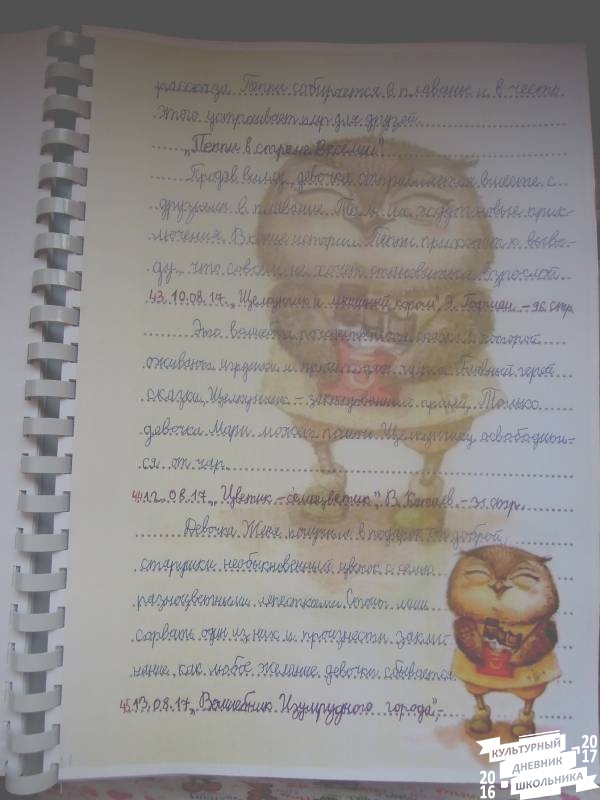 рассказа Пеппи собирается в плаванье и в честь
этого устраивает пир для друзей.
„Пеппи в стране Веселии"
Продав виллу, девочка отправляется вместе с
друзьями в плавание. Там их ждут новые прик-
лючения. В конце истории Пеппи приходит к выво-
ду, что совсем не хочет становиться взрослой.
43. 10.08.17 „Щелкунчик и мышиный король" Э. Гофман. – 96 стр.
Это волшебная рождественская сказка в которой
оживают игрушки и происходят чудеса. Главный герой
сказки Щелкунчик – заколдованный принц. Только
девочка Мари может помочь Щелкунчику освободить-
ся от чар.
44. 12.08.17 „Цветик – семицветик", В. Катаев. – 31 стр.
Девочка Женя получила в подарок от доброй
старушки необыкновенный цветок с семью
разноцветными лепестками. Стоит лишь
сорвать один из них и произнести закли-
нание как любое желание девочки сбывается.
45. 13.08.17 „Волшебник Изумрудного города", –
КУЛЬТУРНЫЙ
ДНЕВНИК
ШКОЛЬНИКА
2016
2017